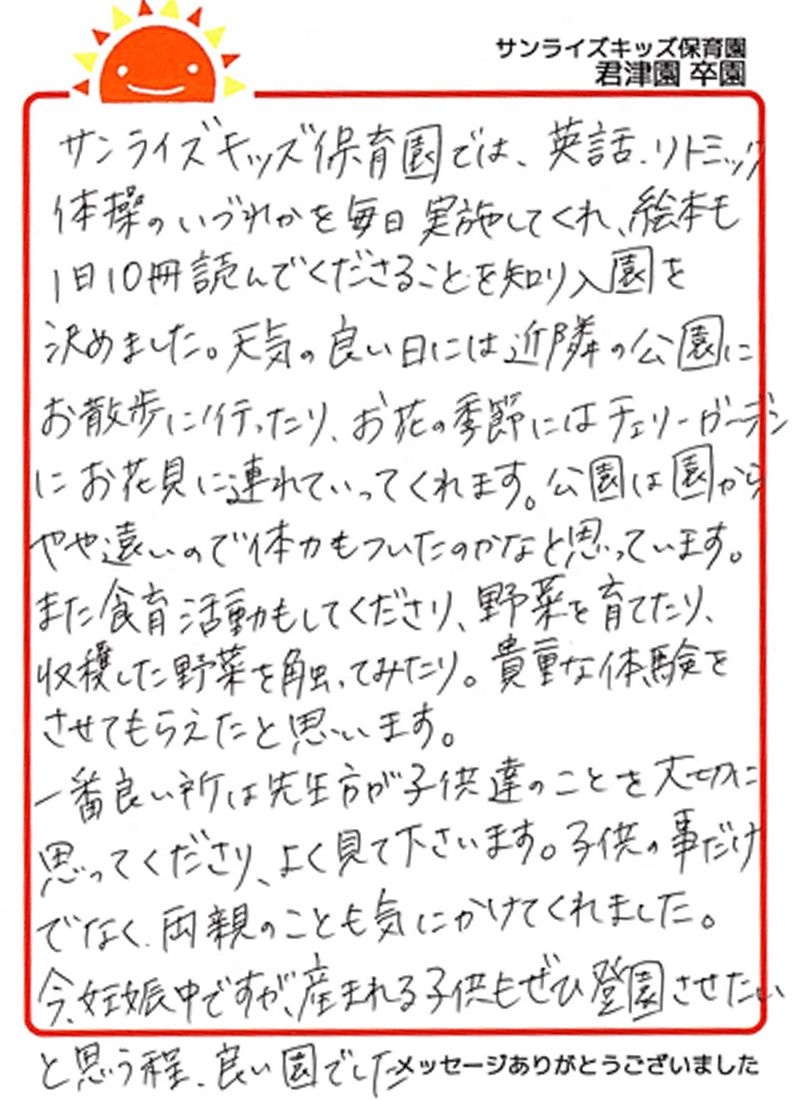 サンライズキッズ保育園
君津園 卒園
サンライズキッズ保育園では、英話、リトミック
体操のいづれかを毎日実施してくれ、絵本も
1日10冊読んでくださることを知り入園を
決めました。天気の良い日には近隣の公園に
お散歩に行ったり、お花の季節にはチェリーガーデン
にお花見に連れていってくれます。公園は園から
やや遠いので体力もついたのかなと思っています。
また食育活動もしてくださり、野菜を育てたり、
収穫した野菜を触ってみたり。貴重な体験を
させてもらえたと思います。
一番良い所は先生方が子供達のことを大切に
思ってくださり、よく見て下さいます。子供の事だけ
でなく、両親のことも気にかけてくれました。
今、妊娠中ですが、産まれる子供もぜひ登園させたい
と思う程、良い園でした
メッセージありがとうございました